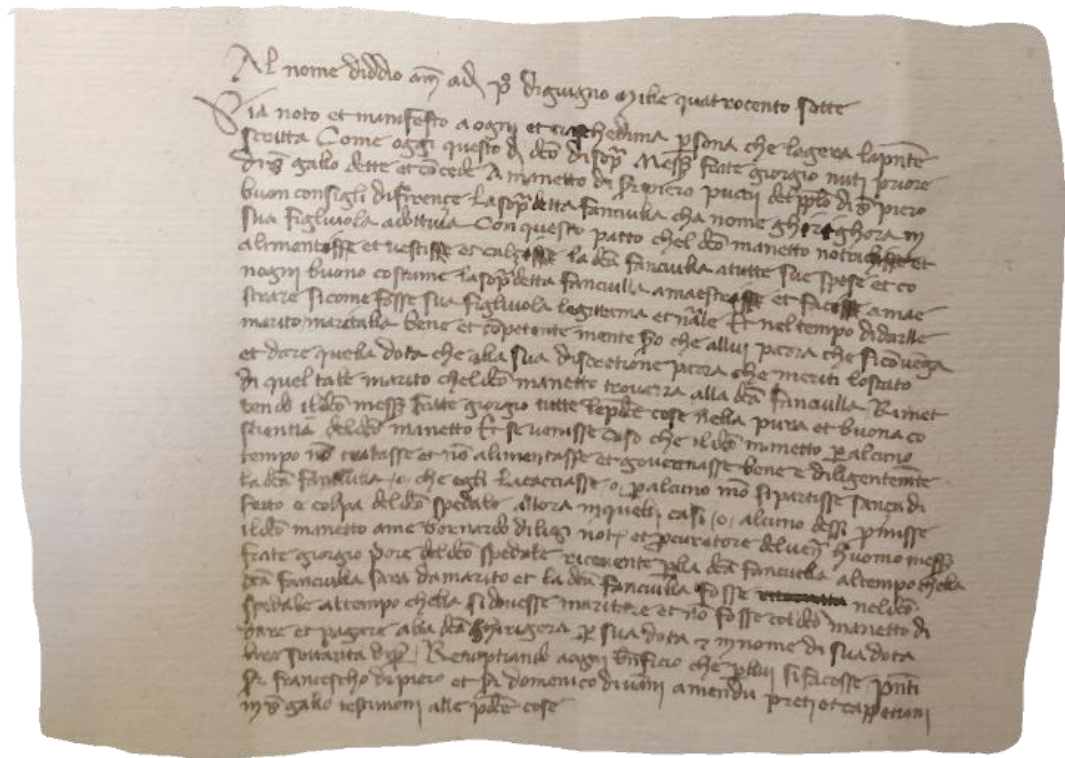 Al nome diddio am̄ adj po digiugno Mille quatrocento sette
Sia noto et manifesto a ogni et ciaschedima psona che legera lapn̄te
scritta Come oggi questo dj dc̄o disop̄ Mess frate giorgio nuti priore
di gallo dette et cōcede A manetto di piero pucci del pplo di s piero
buon consigli difirençe lasop̄detta fanciulla cha nome ghirighora in
sua figliuola adottiva Con questo patto chel dc̄o manetto
alimentasse et vestisse et calçasse la dc̄a fanciulla atutte sue spese et co
nogni buono costume lasop̄detta fanciulla amaestrasse et facesse amae
strare sicome fosse sua figliuola legittima et nāle Et nel tempo didarlle
marito maritalla bene et cōpetente mente sco che allui parra che sicōvēga
et dare quella dota che alla sua discretione parra che meriti lostato
di quel tale marito cheldc̄o manetto troverra alla dc̄a fanciulla Rimet
tendo ildc̄o mess frate giorgio tutte lepdc̄e cose nella pura et buona co
scientia deldc̄o manetto Et se venisse caso che ildc̄o manetto p alcuno
tempo nō trattasse et nō alimentasse et governasse bene e diligentem̄te
la dc̄a fanciulla /o/ che egli lacacciasse /o/ p alcuno mō sipartisse sança di
fetto e colpa deldc̄o spedale allora inquelli casi /o/ alcuno dessi pmisse
ildc̄o manetto ame bernardo diligi not et pcuratore delven huomo mess
frate giorgio pore deldc̄o spedale ricevente plla dc̄a fanciulla altempo chella
dc̄a fanciulla sara damarito et la dc̄a fanciulla fosse neldc̄o
spedale altempo chella sidovesse maritare et nō fosse coldc̄o manetto di
dare et pagare alla dc̄a ghirigora p sua dota et in nome di sua dota
lire settanta Renuntiando aogni bn̄ficio che pllui sifacesse pn̄ti
s francescho dipiero et s domenico divāni amendu preti et cappellani
in s gallo testimoni alle pdc̄e cose